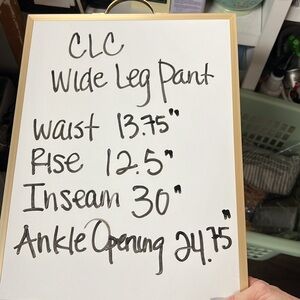 CLC
Wide Leg Pant
Waist 13.75"
Rise 12.5"
Inseam 30"
Ankle Opening 24.75"